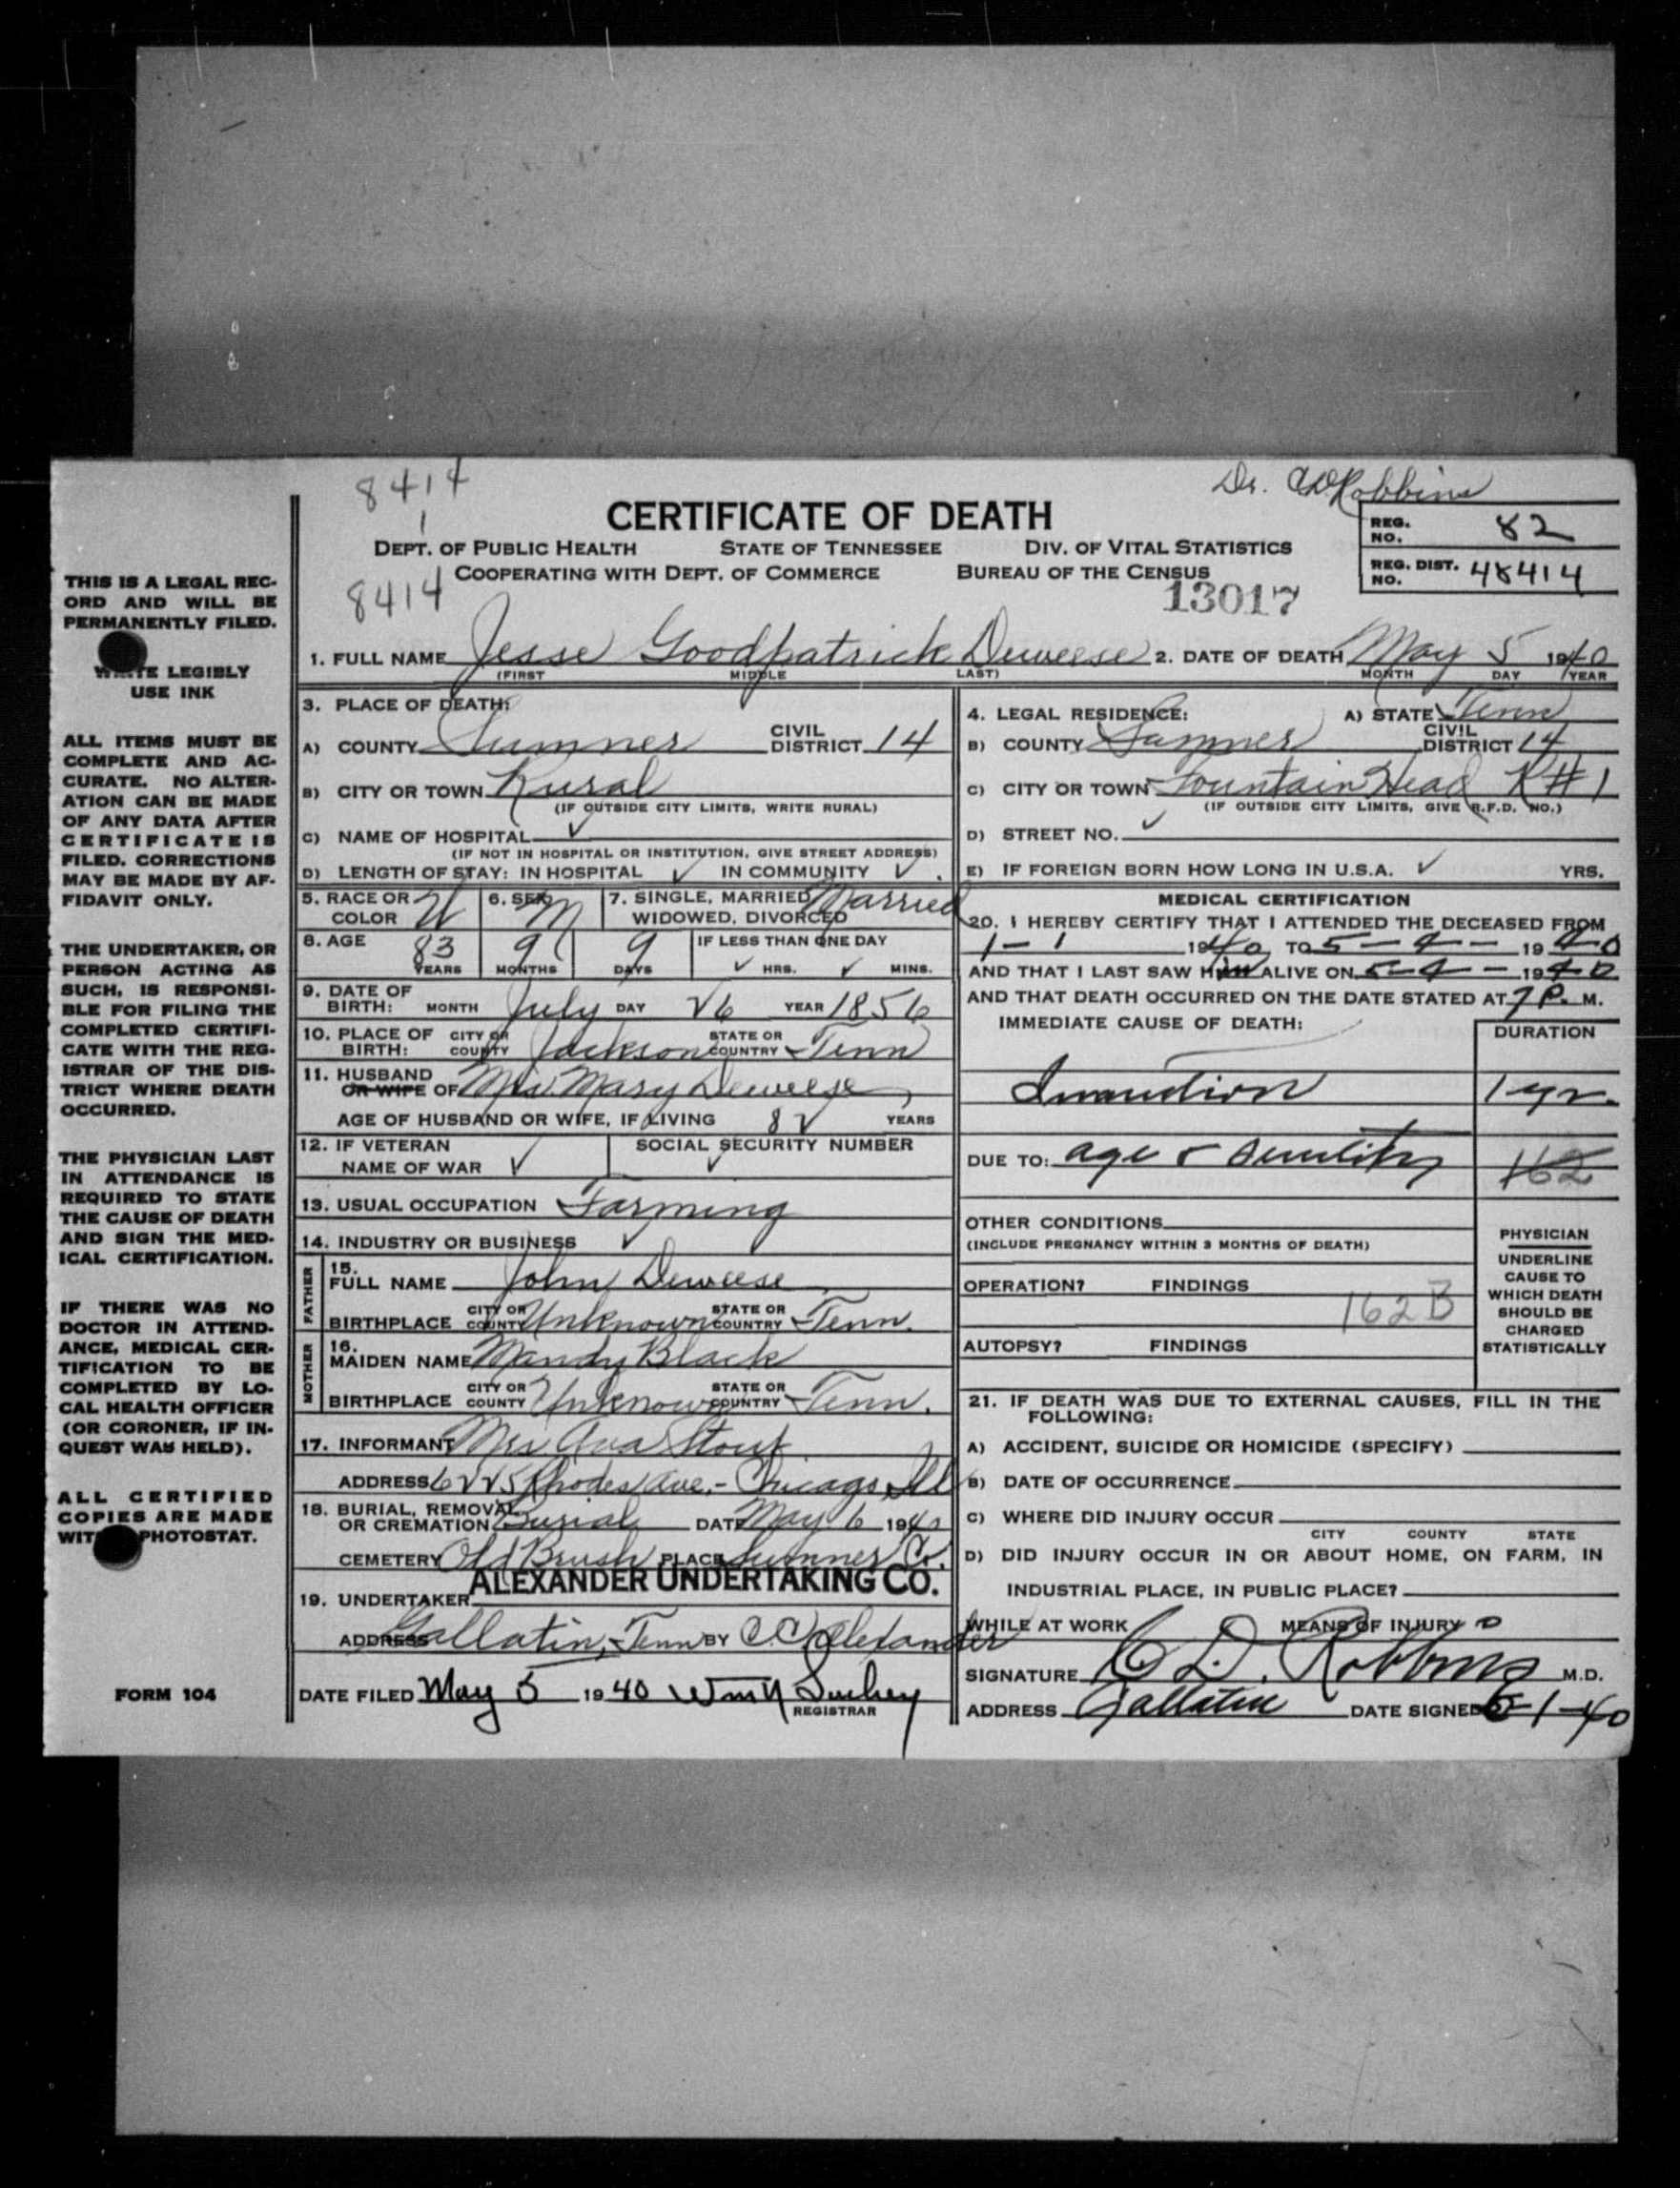 8414
1
8414
Dr. CD Robbins
CERTIFICATE OF DEATH
DEPT. OF PUBLIC HEALTH STATE OF TENNESSEE DIV. OF VITAL STATISTICS
COOPERATING WITH DEPT. OF COMMERCE BUREAU OF THE CENSUS
13017
REG. NO. 82
REG. DIST. NO. 48414
THIS IS A LEGAL REC-
ORD AND WILL BE
PERMANENTLY FILED.
WRITE LEGIBLY
USE INK
ALL ITEMS MUST BE
COMPLETE AND AC-
CURATE. NO ALTER-
ATION CAN BE MADE
OF ANY DATA AFTER
CERTIFICATE IS
FILED. CORRECTIONS
MAY BE MADE BY AF-
FIDAVIT ONLY.
THE UNDERTAKER, OR
PERSON ACTING AS
SUCH, IS RESPONSI-
BLE FOR FILING THE
COMPLETED CERTIFI-
CATE WITH THE REG-
ISTRAR OF THE DIS-
TRICT WHERE DEATH
OCCURRED.
THE PHYSICIAN LAST
IN ATTENDANCE IS
REQUIRED TO STATE
THE CAUSE OF DEATH
AND SIGN THE MED-
ICAL CERTIFICATION.
IF THERE WAS NO
DOCTOR IN ATTEND-
ANCE, MEDICAL CER-
TIFICATION TO BE
COMPLETED BY LO-
CAL HEALTH OFFICER
(OR CORONER, IF IN-
QUEST WAS HELD).
ALL CERTIFIED
COPIES ARE MADE
WITH PHOTOSTAT.
FORM 104
1. FULL NAME Jesse Goodpatrick Deweese 2. DATE OF DEATH May 5 1940
(FIRST MIDDLE LAST) MONTH DAY YEAR
3. PLACE OF DEATH:
A) COUNTY Sumner CIVIL DISTRICT 14
B) CITY OR TOWN Rural
(IF OUTSIDE CITY LIMITS, WRITE RURAL)
C) NAME OF HOSPITAL ✓
(IF NOT IN HOSPITAL OR INSTITUTION, GIVE STREET ADDRESS)
D) LENGTH OF STAY: IN HOSPITAL ✓ IN COMMUNITY ✓.
4. LEGAL RESIDENCE: A) STATE Tenn
B) COUNTY Sumner CIVIL DISTRICT 14
C) CITY OR TOWN Fountain Head R#1
(IF OUTSIDE CITY LIMITS, GIVE R.F.D. NO.)
D) STREET NO. ✓
E) IF FOREIGN BORN HOW LONG IN U.S.A. ✓ YRS.
5. RACE OR COLOR W 6. SEX M 7. SINGLE, MARRIED, WIDOWED, DIVORCED Married
8. AGE 83 YEARS 9 MONTHS 9 DAYS IF LESS THAN ONE DAY ✓ HRS. ✓ MINS.
9. DATE OF BIRTH: MONTH July DAY 26 YEAR 1856
10. PLACE OF BIRTH: CITY OR COUNTY Jackson STATE OR COUNTRY Tenn
11. HUSBAND OR WIFE OF Mrs. Mary Deweese
AGE OF HUSBAND OR WIFE, IF LIVING 82 YEARS
12. IF VETERAN NAME OF WAR ✓ SOCIAL SECURITY NUMBER ✓
13. USUAL OCCUPATION Farming
14. INDUSTRY OR BUSINESS ✓
FATHER
15. FULL NAME John Deweese
BIRTHPLACE CITY OR COUNTY Unknown STATE OR COUNTRY Tenn.
MOTHER
16. MAIDEN NAME Mandy Black
BIRTHPLACE CITY OR COUNTY Unknown STATE OR COUNTRY Tenn.
17. INFORMANT Mrs Ava Stout
ADDRESS 6225 Rhodes Ave.- Chicago Ill
18. BURIAL, REMOVAL OR CREMATION Burial DATE May 6 1940
CEMETERY Old Brush PLACE Sumner Co.
19. UNDERTAKER ALEXANDER UNDERTAKING CO.
ADDRESS Gallatin, Tenn BY C.C. Alexander
DATE FILED May 5 1940 Wm N
REGISTRAR
MEDICAL CERTIFICATION
20. I HEREBY CERTIFY THAT I ATTENDED THE DECEASED FROM
1-1 1940 TO 5-4- 1940
AND THAT I LAST SAW Him ALIVE ON 5-4- 1940
AND THAT DEATH OCCURRED ON THE DATE STATED AT 7 P. M.
IMMEDIATE CAUSE OF DEATH: DURATION
1 yr.
DUE TO: age & Senility 162
OTHER CONDITIONS
(INCLUDE PREGNANCY WITHIN 3 MONTHS OF DEATH)
OPERATION? FINDINGS
162B
AUTOPSY? FINDINGS
PHYSICIAN
UNDERLINE
CAUSE TO
WHICH DEATH
SHOULD BE
CHARGED
STATISTICALLY
21. IF DEATH WAS DUE TO EXTERNAL CAUSES, FILL IN THE
FOLLOWING:
A) ACCIDENT, SUICIDE OR HOMICIDE (SPECIFY)
B) DATE OF OCCURRENCE
C) WHERE DID INJURY OCCUR
CITY COUNTY STATE
D) DID INJURY OCCUR IN OR ABOUT HOME, ON FARM, IN
INDUSTRIAL PLACE, IN PUBLIC PLACE?
WHILE AT WORK MEANS OF INJURY
SIGNATURE C D. Robbins M.D.
ADDRESS Gallatin DATE SIGNED 6-1-40